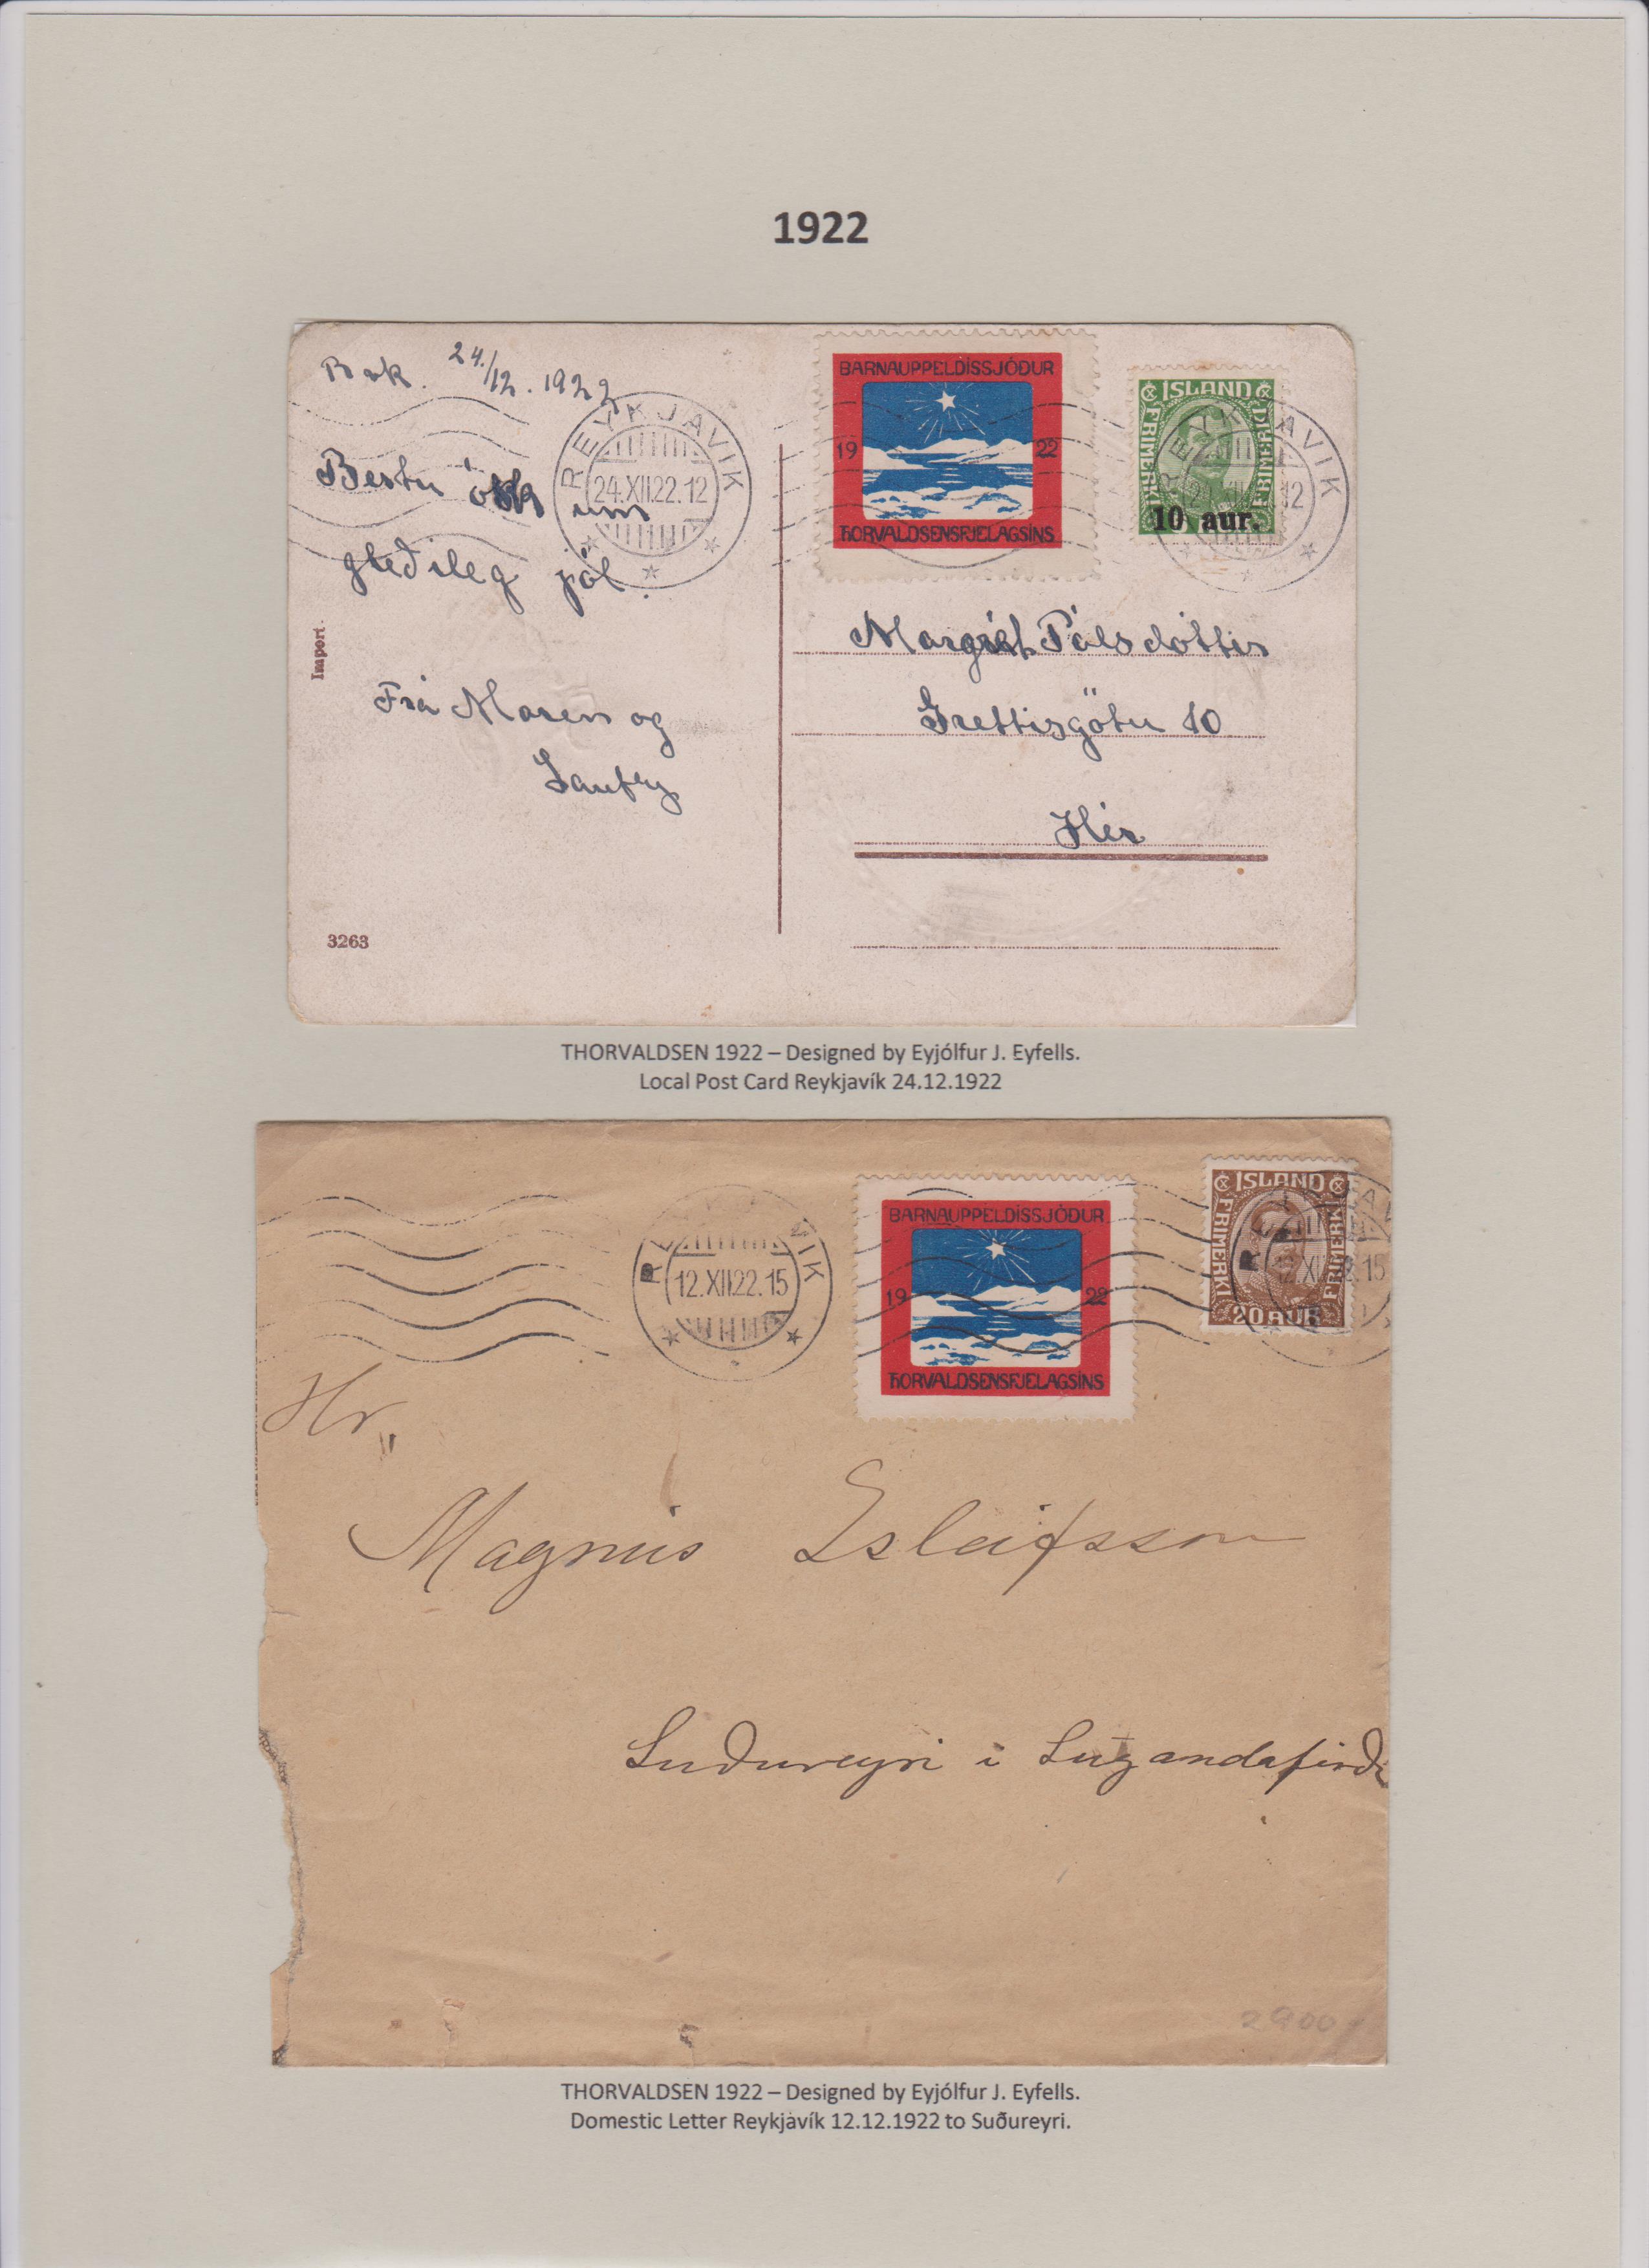 1922
24./12. 1922
REYKJAVIK
24.XII.22.12
BARNAUPPELDISSJÓÐUR
19 22
ÞORVALDSENSFJELAGSINS
ÍSLAND
FRIMERKI FRIMERKI
10 aur.
REYKJAVIK
Bestu óskir um
gleðileg jól.
Frá Maren og
Laufey
Import.
Margrét Pálsdóttir
Grettisgötu 10
Hér
3263
THORVALDSEN 1922 – Designed by Eyjólfur J. Eyfells.
Local Post Card Reykjavík 24.12.1922
12.XII.22.15
BARNAUPPELDISSJÓÐUR
19 22
ÞORVALDSENSFJELAGSINS
ÍSLAND
FRIMERKI FRIMERKI
20 AUR
Hr.
Magnús Ísleifsson
Suðureyri í Súgandafirði
2900
THORVALDSEN 1922 – Designed by Eyjólfur J. Eyfells.
Domestic Letter Reykjavík 12.12.1922 to Suðureyri.